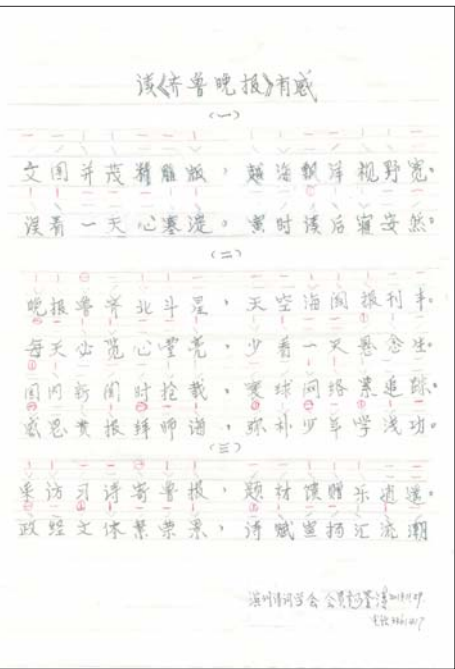 读《齐鲁晚报》有感
（一）
文图并茂精雕版，越海飘洋视野宽。
误看一天心塞涩，寅时读后寝安然。
（二）
晚报鲁齐北斗星，天空海阔报刊丰。
每天必览心莹亮，少看一天悬念生。
国内新闻时抢载，寰球网络紧追踪。
感恩贵报拜师谱，弥补少年学浅功。
（三）
采访习诗寄鲁报，题材馈赠乐逍遥。
政经文体繁荣果，诗赋宣扬汇流潮
滨州诗词学会 会员